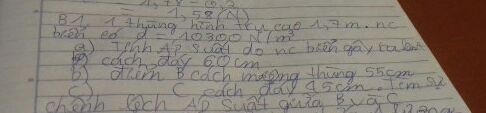 = 1,58 (N)
B1. 1 thùng hình trụ cao 1,7m. nc
biển có d = 10300 N/m³
a) Tính AP suất do nc biển gây ra
cách đáy 60cm
b) điểm B cách miệng thùng 55cm
c) C cách đáy 45cm. Tìm sự
chênh lệch AP suất giữa B và C